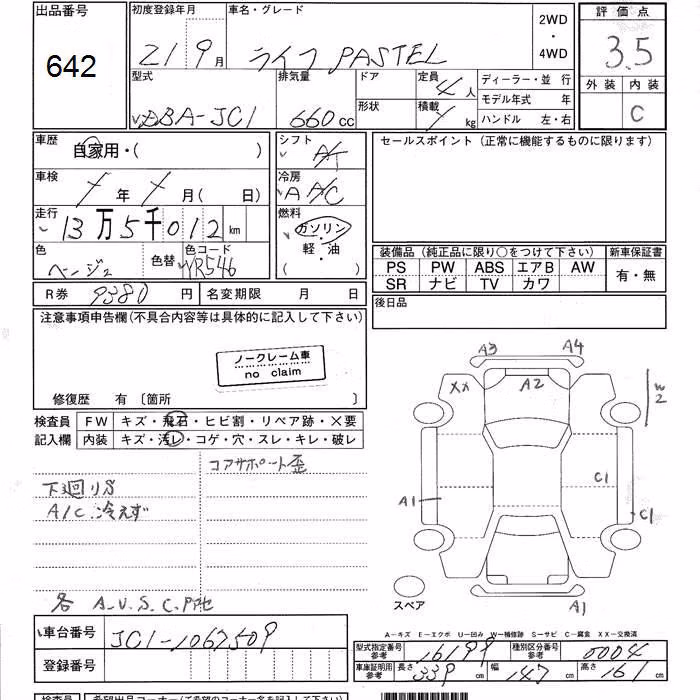 出品番号
642
初度登録年月
21 9月
車名・グレード
ライフ PASTEL
2WD
・
4WD
評価点
3.5
外装 内装
C
型式
DBA-JC1
排気量
660cc
ドア
形状
定員
4人
積載
kg
ディーラー・並 行
モデル年式 年
ハンドル 左・右
車歴
自家用・( )
シフト
A/T
セールスポイント(正常に機能するものに限ります)
車検
年 月( 日)
冷房
A A/C
走行
13万5千012km
燃料
ガソリン
・
軽・油
( )
色
ベージュ
色替
色コード
YR546
装備品(純正品に限り○をつけて下さい)
新車保証書
PS PW ABS エアB AW
SR ナビ TV カワ
有・無
R券 9380円
名変期限 月 日
後日品
注意事項申告欄(不具合内容等は具体的に記入して下さい)
ノークレーム車
no claim
修復歴 有〔箇所 〕
検査員
記入欄
FW キズ・飛石・ヒビ割・リペア跡・X要
内装 キズ・汚レ・コゲ・穴・スレ・キレ・破レ
コアサポート歪
下廻りS
A/C冷えず
各 A.U.S.C.P他
A3 A4
XX A2 W2
A1 C1
C1
スペア
A1
車台番号 JC1-1067509
登録番号
A-キズ E-エクボ U-凹み W-補修跡 S-サビ C-腐食 XX-交換済
型式指定番号
参考
16199
種別区分番号
参考
0004
車庫証明用
参考
長さ 339cm 幅 147cm 高さ 161cm
検査員
希望出品コーナー(ご希望のコーナー名を記入して下さい)